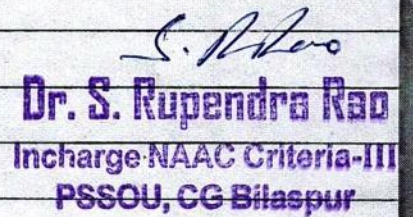 S. R Rao
Dr. S. Rupendra Rao
Incharge NAAC Criteria-III
PSSOU, CG Bilaspur